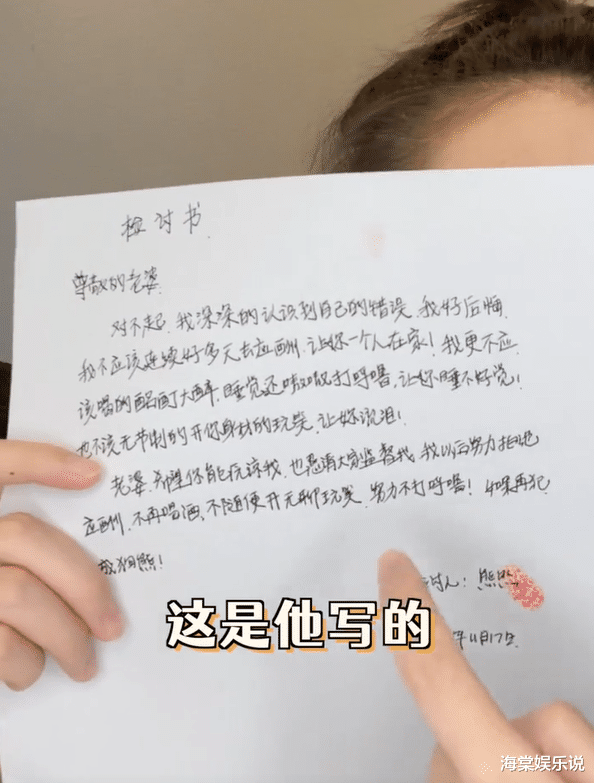 检讨书
尊敬的老婆
对不起,我深深的认识到自己的错误,我好后悔.
我不应该连续好多天去应酬,让你一个人在家!我更不应
该喝的酩酊大醉,睡觉还嗷嗷打呼噜,让你睡不好觉!
也不该无节制的开你身材的玩笑,让你流泪!
老婆,希望你能原谅我,也恳请大家监督我,我以后努力拒绝
应酬,不再喝酒,不随便开无聊玩笑,努力不打呼噜!如果再犯
狗熊!
讨人:熊熊
年11月17日
这是他写的
海棠娱乐说